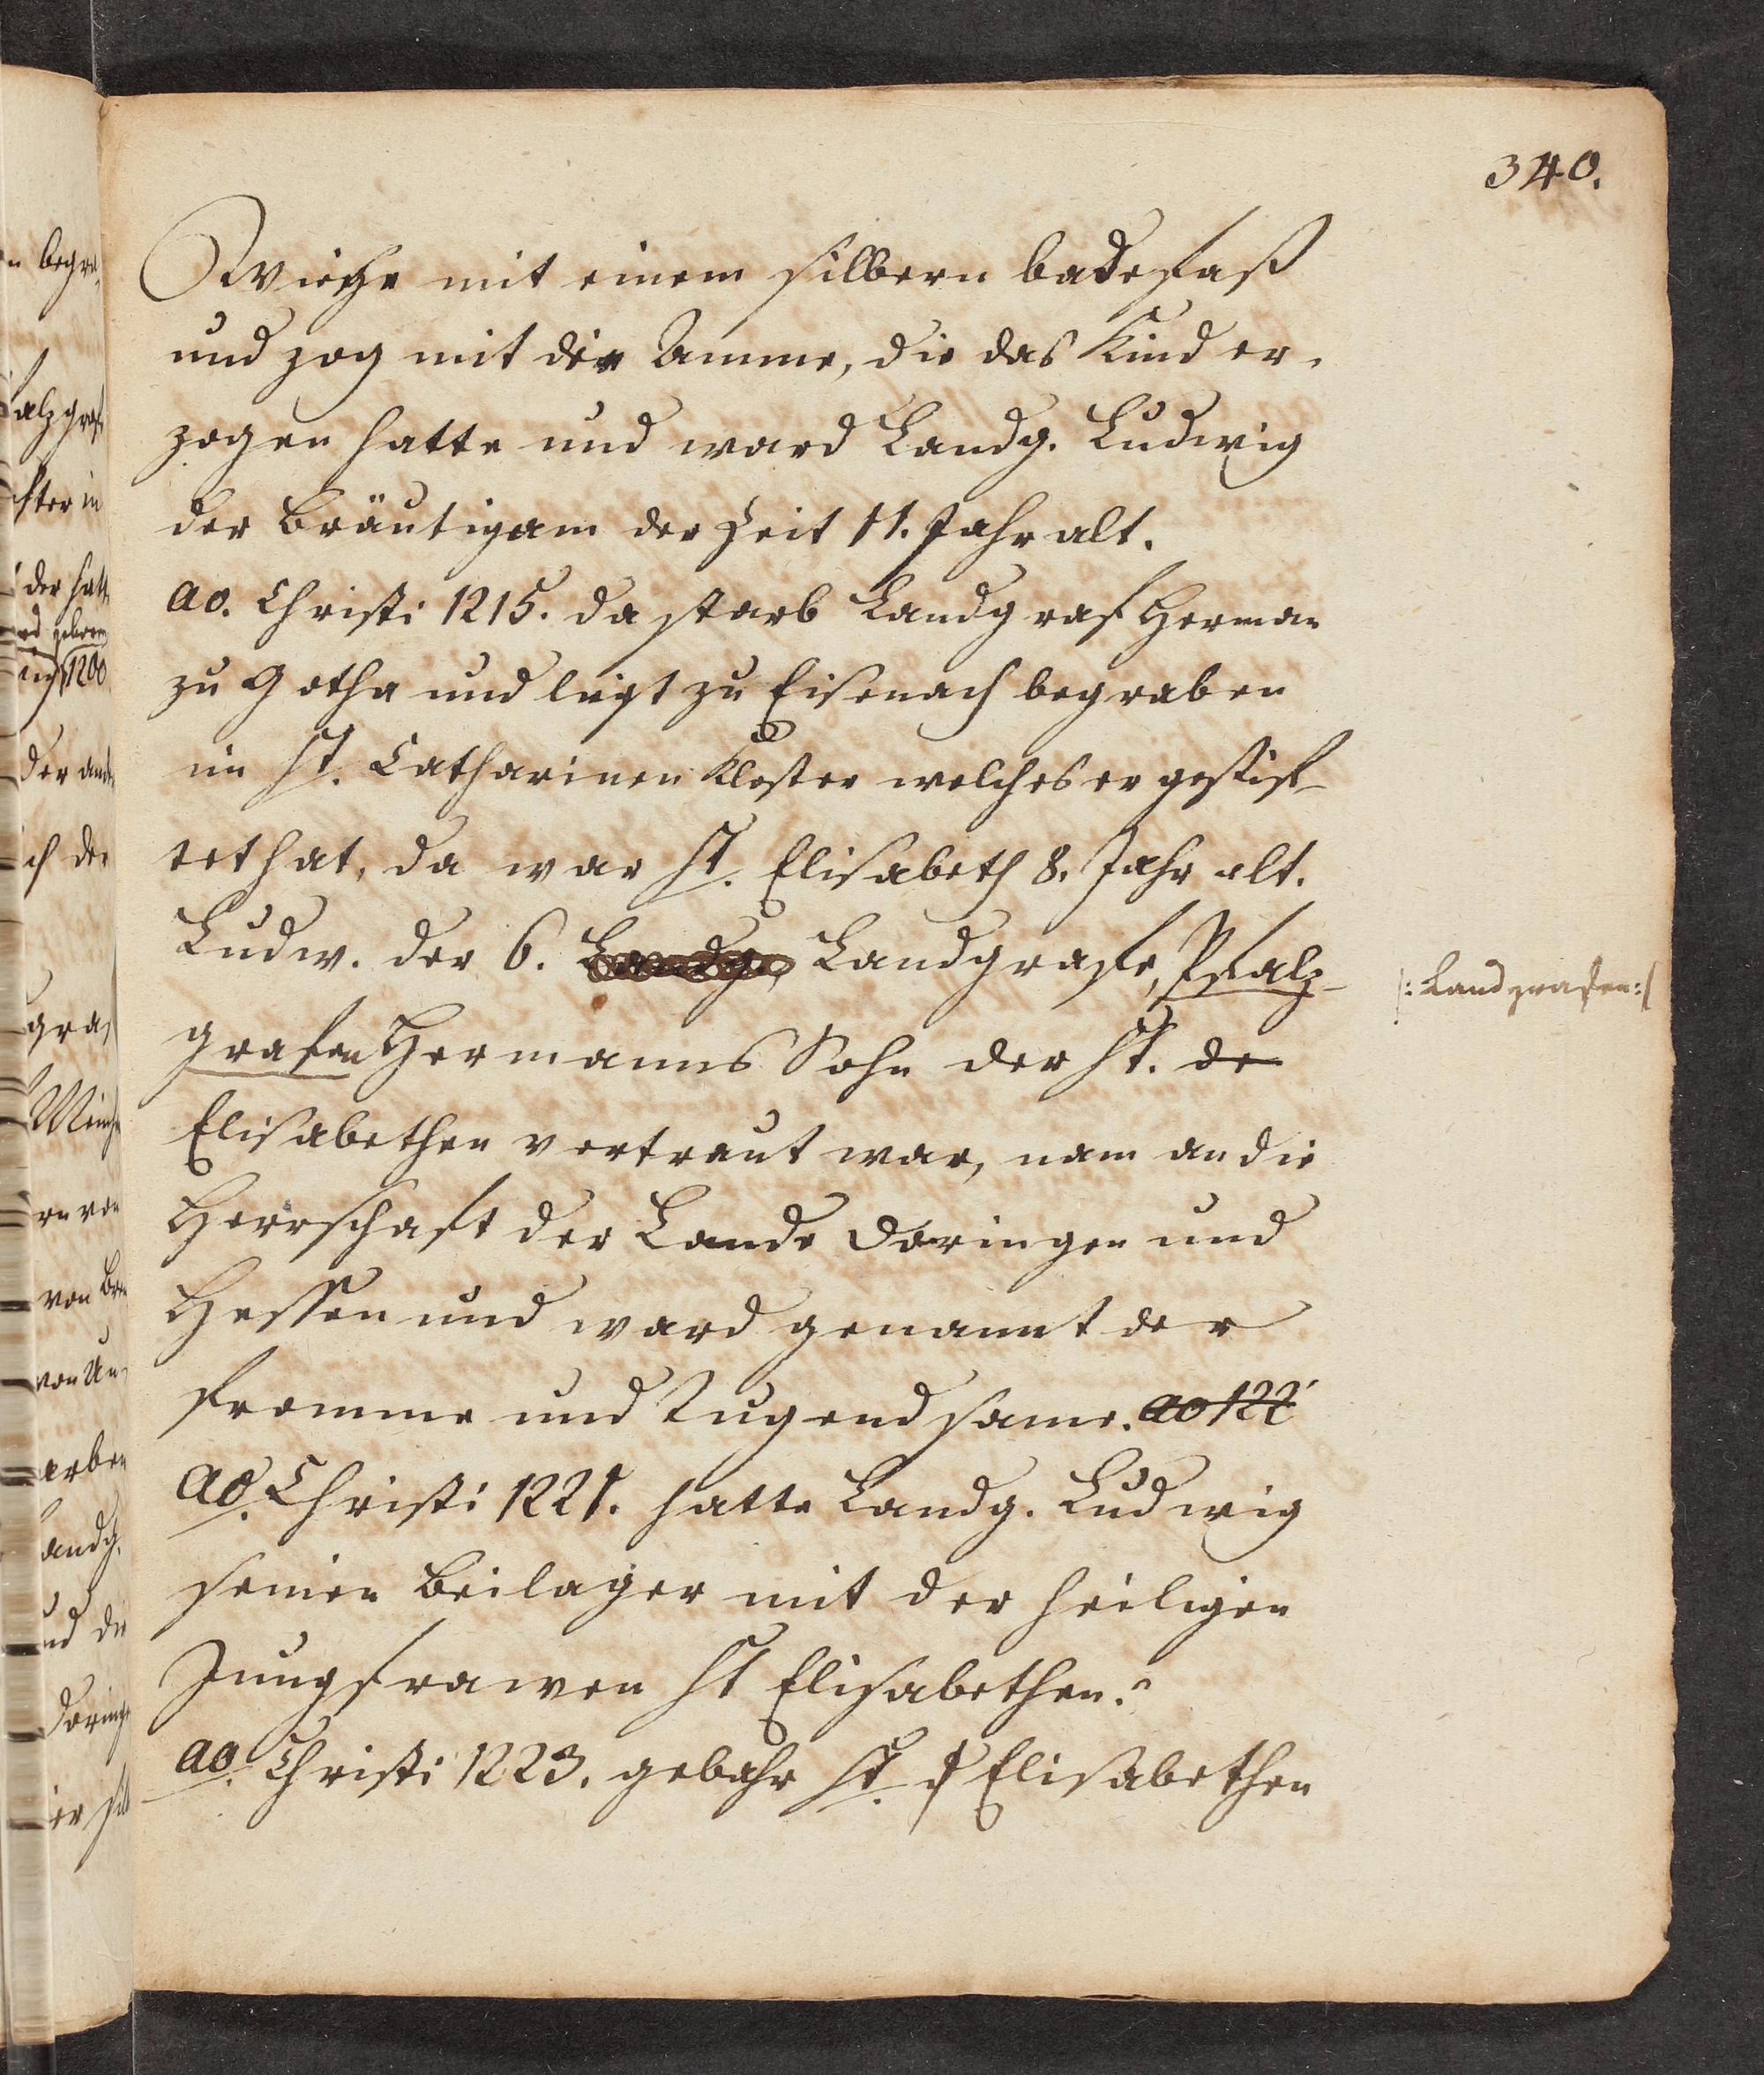 340.
Wiehe mit einem silbern badefaß
und zog mit der Amme, die das Kind er-
zogen hatte und ward Landg. Ludwig
der Bräutigam der Zeit 11. Jahr alt.
ao. Christi 1215. da starb Landgraf Herman
zu Gotha und liegt zu Eisenach begraben
im St. Catharinen Kloster welches er gestif-
tet hat, da war St. Elisabeth 8. Jahr alt.
Ludw. der 6. Landg. Landgrafe, Pfalz-
|: Landgrafen :|
grafen Hermanns Sohn der St. de
Elisabethen vertraut war, nam an die
Herrschaft der Lande Döringen und
Hessen und ward genannt der
fromme und Tugendsame. ao 122
ao. Christi 1221. hatte Landg. Ludwig
seinen Beilager mit der heiligen
Jungfrawen St Elisabethen.
ao. Christi 1223. gebahr St. Elisabethen